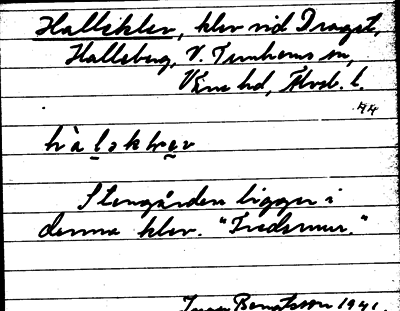 Halleklev, klev vid Draget,
Halleberg, V. Tunhems sn,
Väne hd, Älvsb. l.
hàləkle̬v
Stengården ligger i
denna klev. "Fredsmur."
Bengtsson 1941.